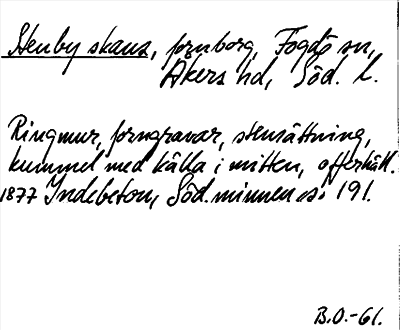 Stenby skans, fornborg, Fogdö sn,
Åkers hd, Söd. l.
Ringmur, forngravar, stensättning,
kummel med källa i mitten, offerkäll.
1877 Indebetou, Söd. minnen s. 191.
B.O.-61.